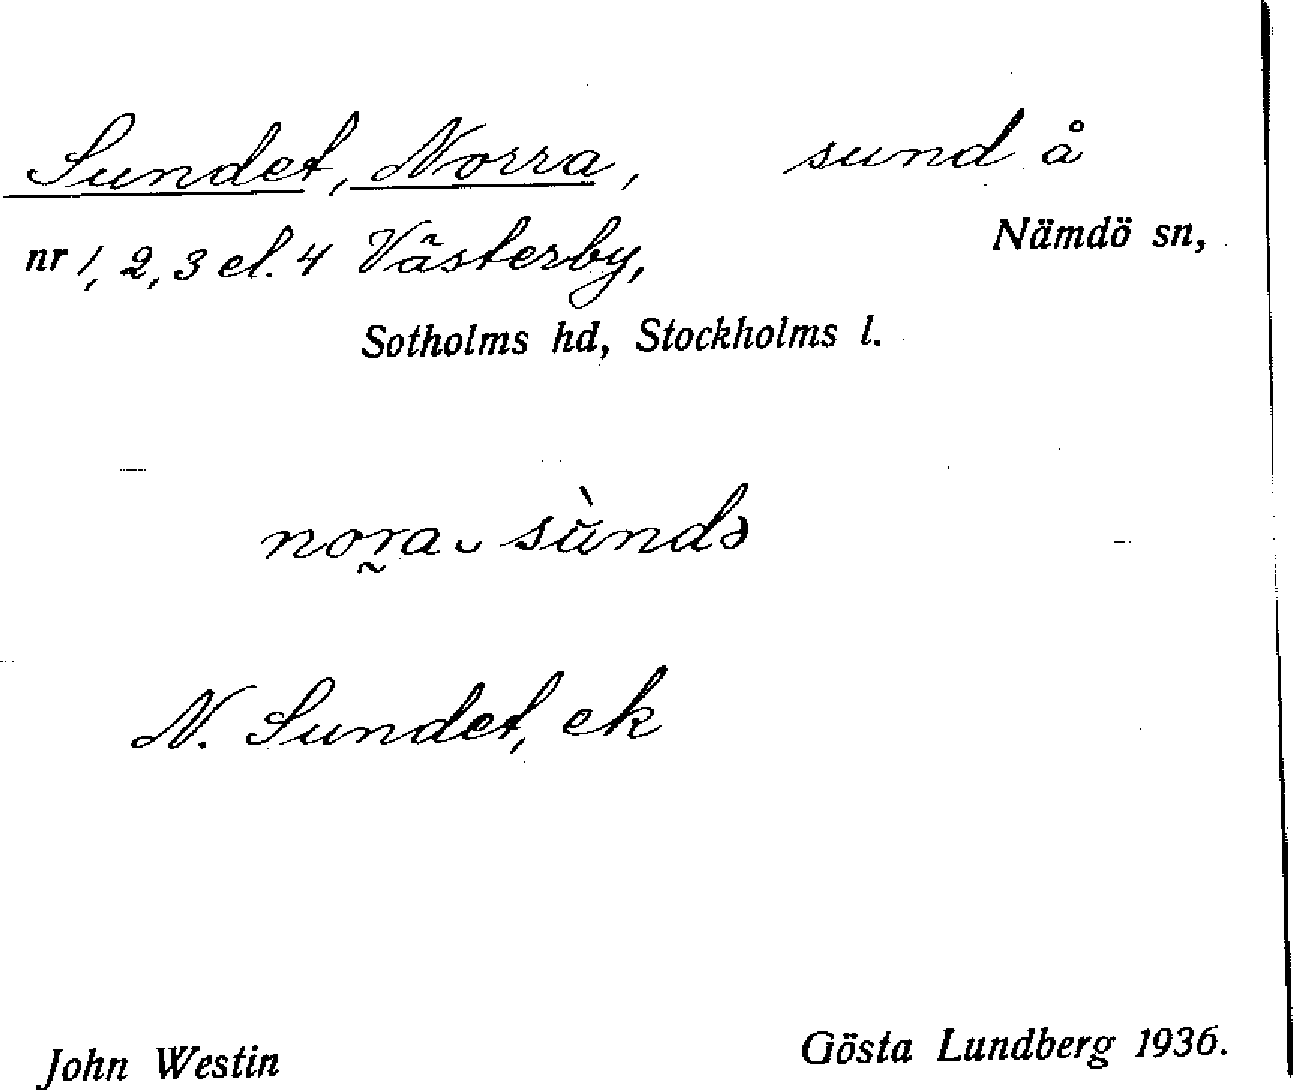 Sundet, Norra, sund å
nr 1, 2, 3 el. 4 Västerby, Nämdö sn,
Sotholms hd, Stockholms l.
nor̰a ˬ sùndə
N. Sundet, ek
John Westin Gösta Lundberg 1936.